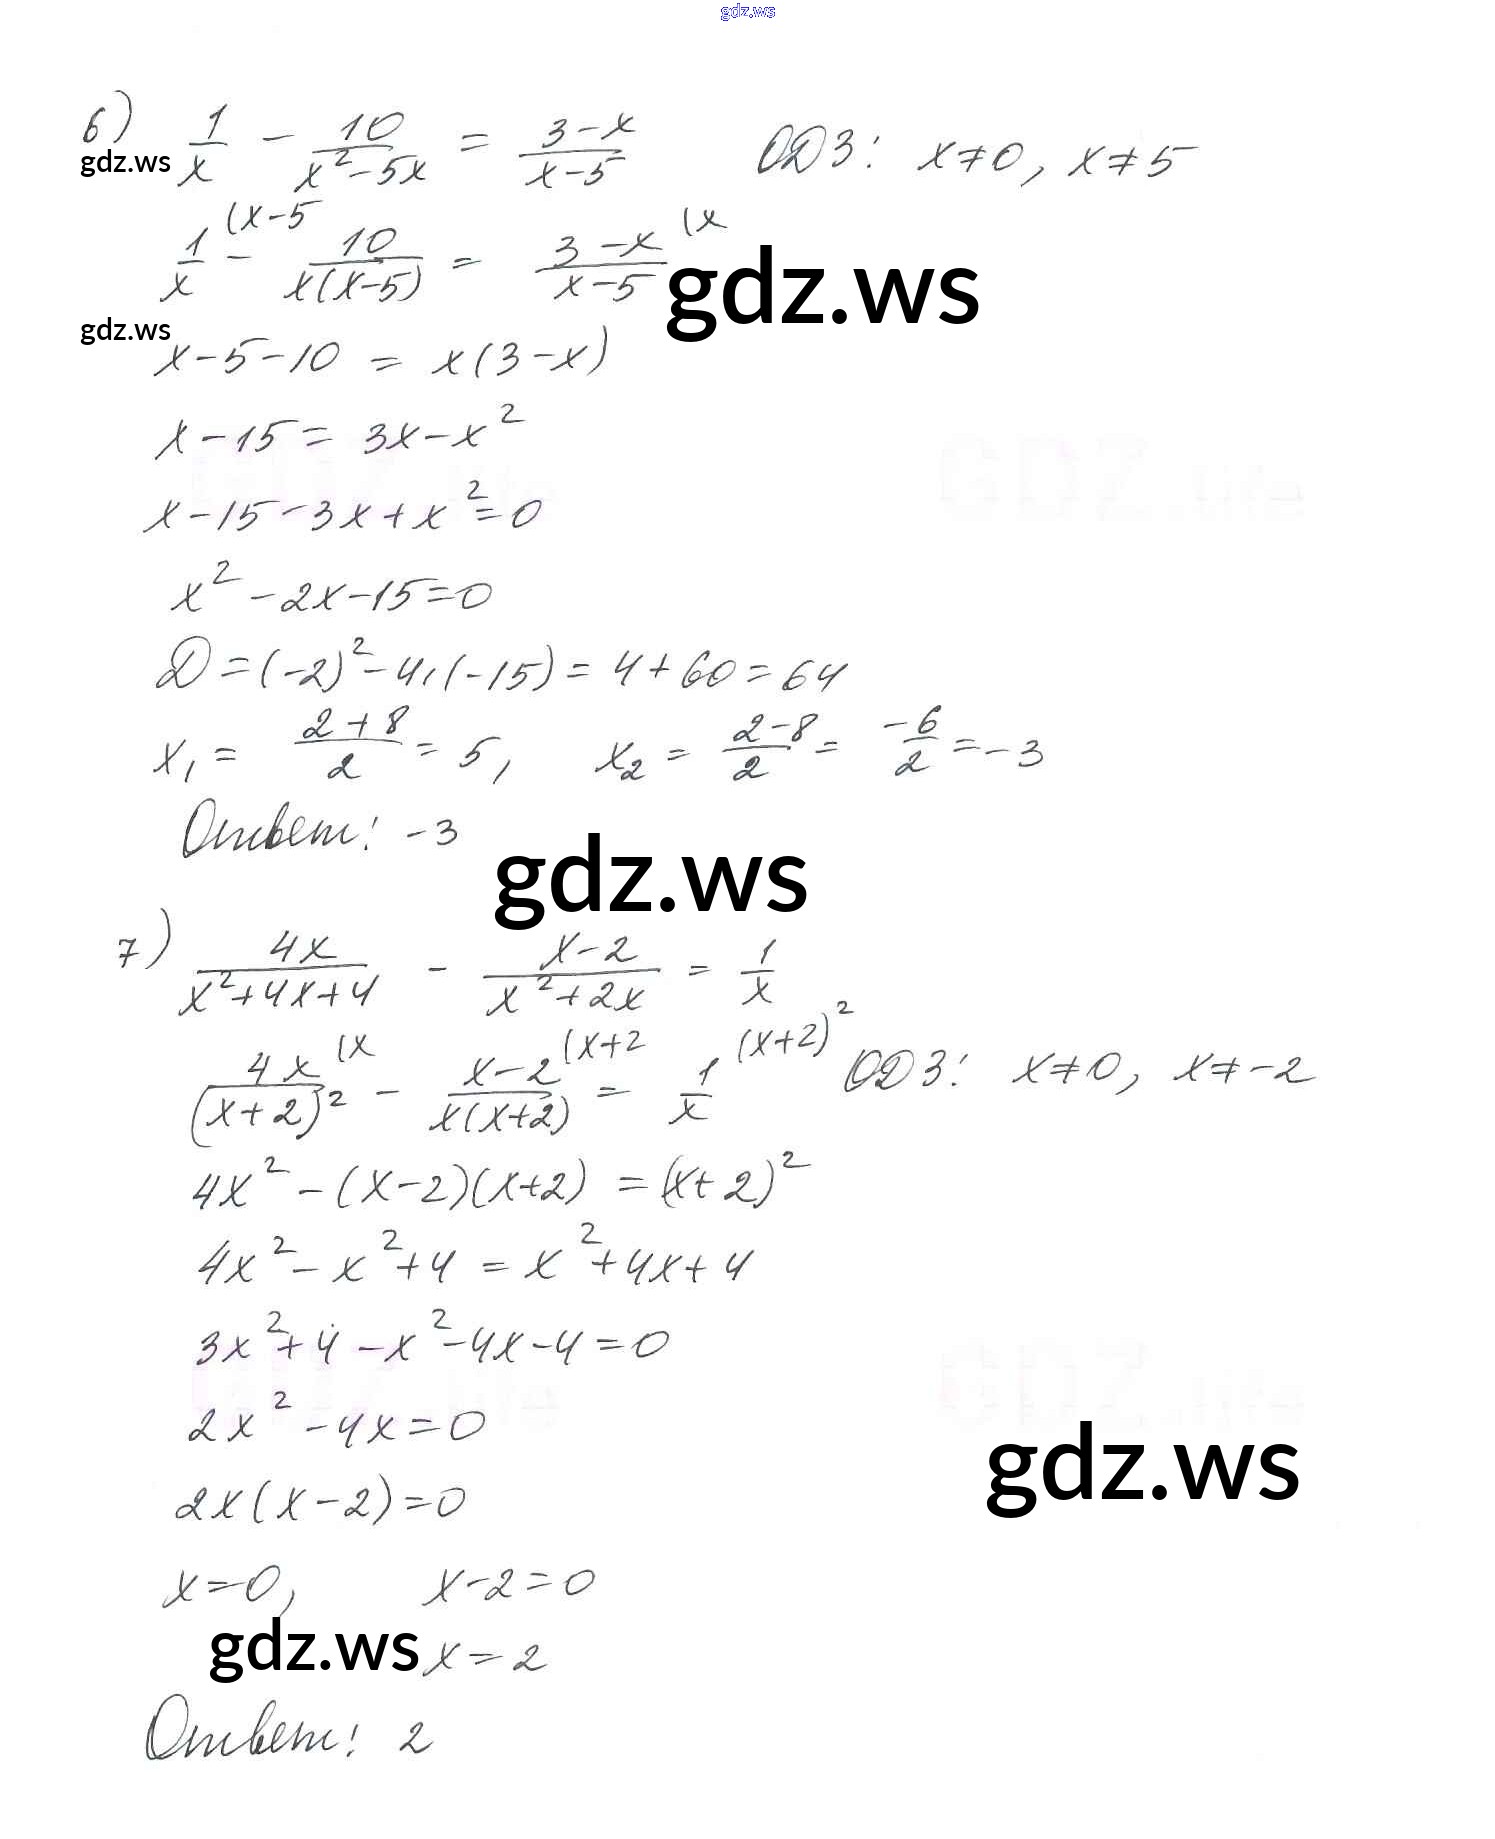 gdz.ws
6) 1/x - 10/(x² - 5x) = (3 - x)/(x - 5) ОДЗ: x ≠ 0, x ≠ 5
gdz.ws
1/x (x - 5 - 10/(x(x - 5)) = (3 - x)/(x - 5) (x
gdz.ws
gdz.ws
x - 5 - 10 = x(3 - x)
x - 15 = 3x - x²
GDZ.life GDZ.life
x - 15 - 3x + x² = 0
x² - 2x - 15 = 0
D = (-2)² - 4·(-15) = 4 + 60 = 64
x₁ = (2 + 8)/2 = 5, x₂ = (2 - 8)/2 = -6/2 = -3
Ответ: -3
gdz.ws
7) 4x/(x² + 4x + 4) - (x - 2)/(x² + 2x) = 1/x
4x/(x + 2)² (x - (x - 2)/(x(x + 2)) (x + 2 = 1/x (x + 2)² ОДЗ: x ≠ 0, x ≠ -2
4x² - (x - 2)(x + 2) = (x + 2)²
4x² - x² + 4 = x² + 4x + 4
3x² + 4 - x² - 4x - 4 = 0
GDZ.life GDZ.life
2x² - 4x = 0
gdz.ws
2x(x - 2) = 0
x = 0, x - 2 = 0
gdz.ws
x = 2
Ответ: 2